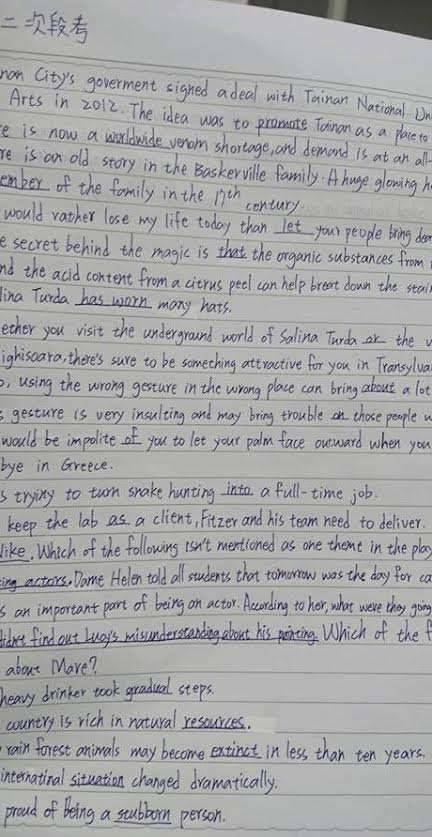 二次段考
nan City's goverment signed a deal with Tainan National Un
Arts in 2012. The idea was to promote Tainan as a place to
e is now a worldwide venom shortage, and demand is at an all-
re is an old story in the Baskerville family. A huge glowing h
ember of the family in the 17th century.
would rather lose my life today than let your people bring
e secret behind the magic is that the organic substances from
nd the acid content from a citrus peel can help breat down the stain
lina Turda has worn many hats.
ether you visit the underground world of Salina Turda or the v
ighisoara, there's sure to be something attractive for you in Transylva
o, using the wrong gesture in the wrong place can bring about a lot
s gesture is very insulting and may bring trouble on those people w
would be impolite of you to let your palm face outward when you
bye in Greece.
s trying to turn snake hunting into a full-time job.
keep the lab as a client, Fitzer and his team need to deliver.
like. Which of the following isn't mentioned as one theme in the play
ing actors. Dame Helen told all students that tomorrow was the day for ca
s an important part of being an actor. According to her, what were they going
didn't find out Lucy's misunderstanding about his painting. Which of the f
about Mare?
heavy drinker took gradual steps.
country is rich in natural resources.
rain forest animals may become extinct in less than ten years.
internatinal situation changed dramatically.
proud of being a stubborn person.